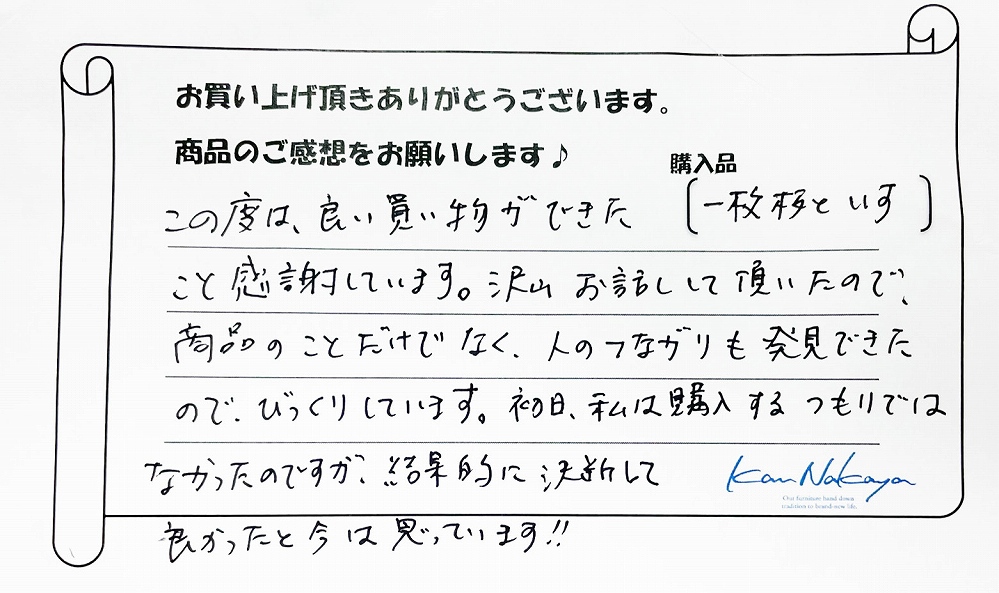 お買い上げ頂きありがとうございます。
商品のご感想をお願いします♪
購入品
(一枚板といす)
この度は、良い買い物ができた
こと感謝しています。沢山お話しして頂いたので、
商品のことだけでなく、人のつながりも発見できた
ので、びっくりしています。初日、私は購入するつもりでは
なかったのですが、結果的に決断して
良かったと今は思っています!!
Kan Nakaya
Our furniture hand down
tradition to brand-new life.